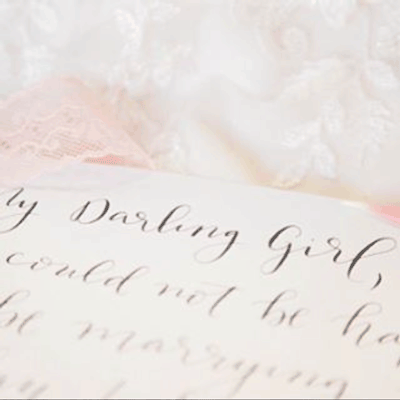 My Darling Girl,
could not be ha
be marrying